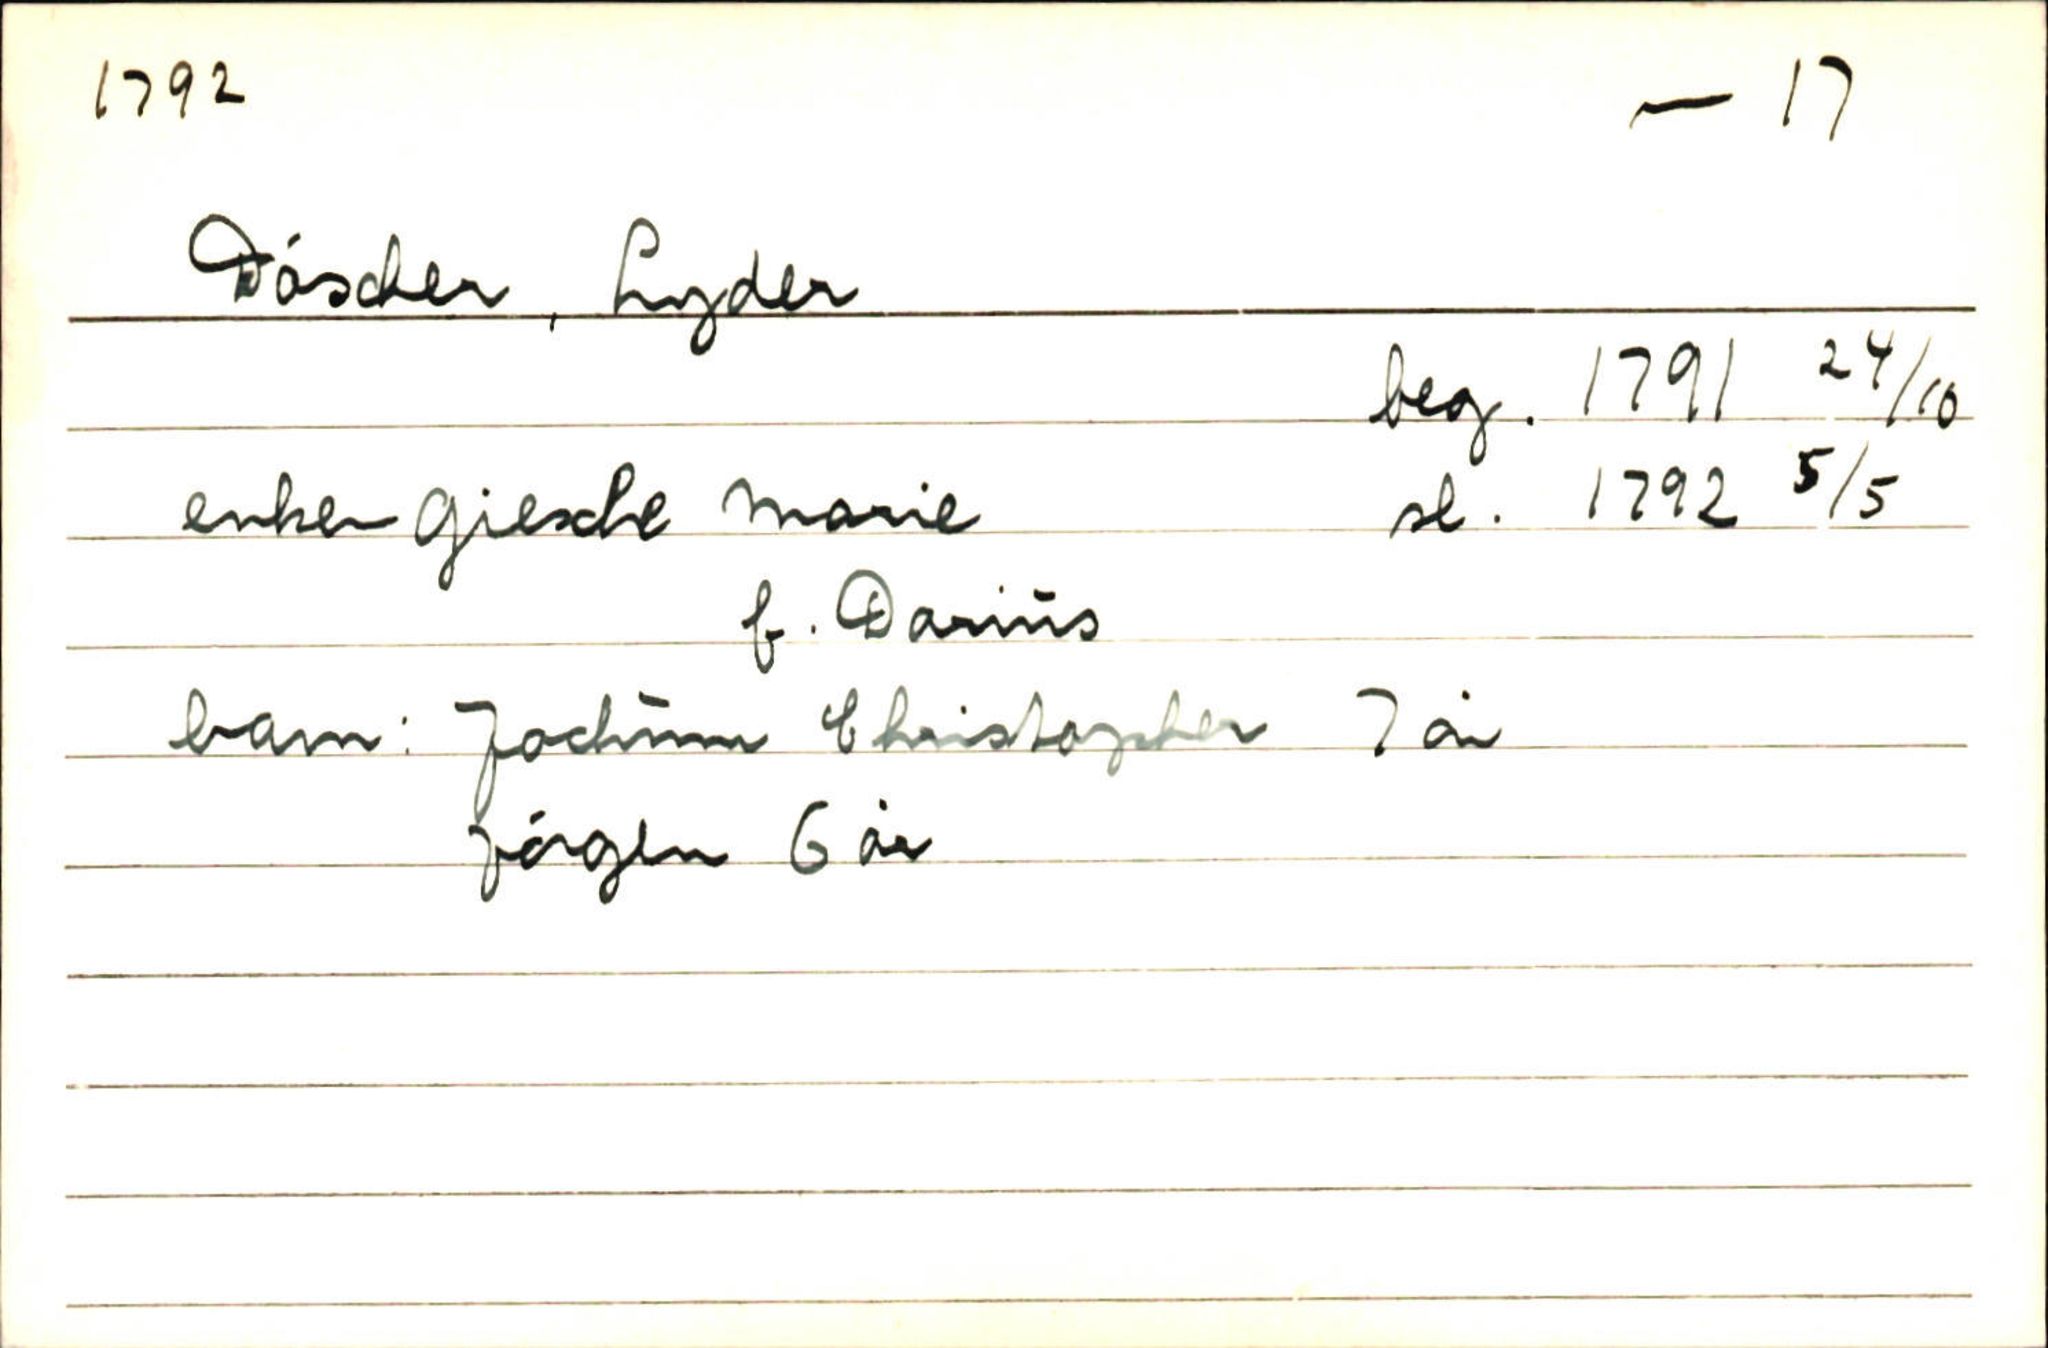 1792 — 17
Döscher, Lyder
beg. 1791 24/10
enken Giesche Marie sl. 1792 5/5
f. Darius
barn: Jochum Christopher 7 år
Jörgen 6 år